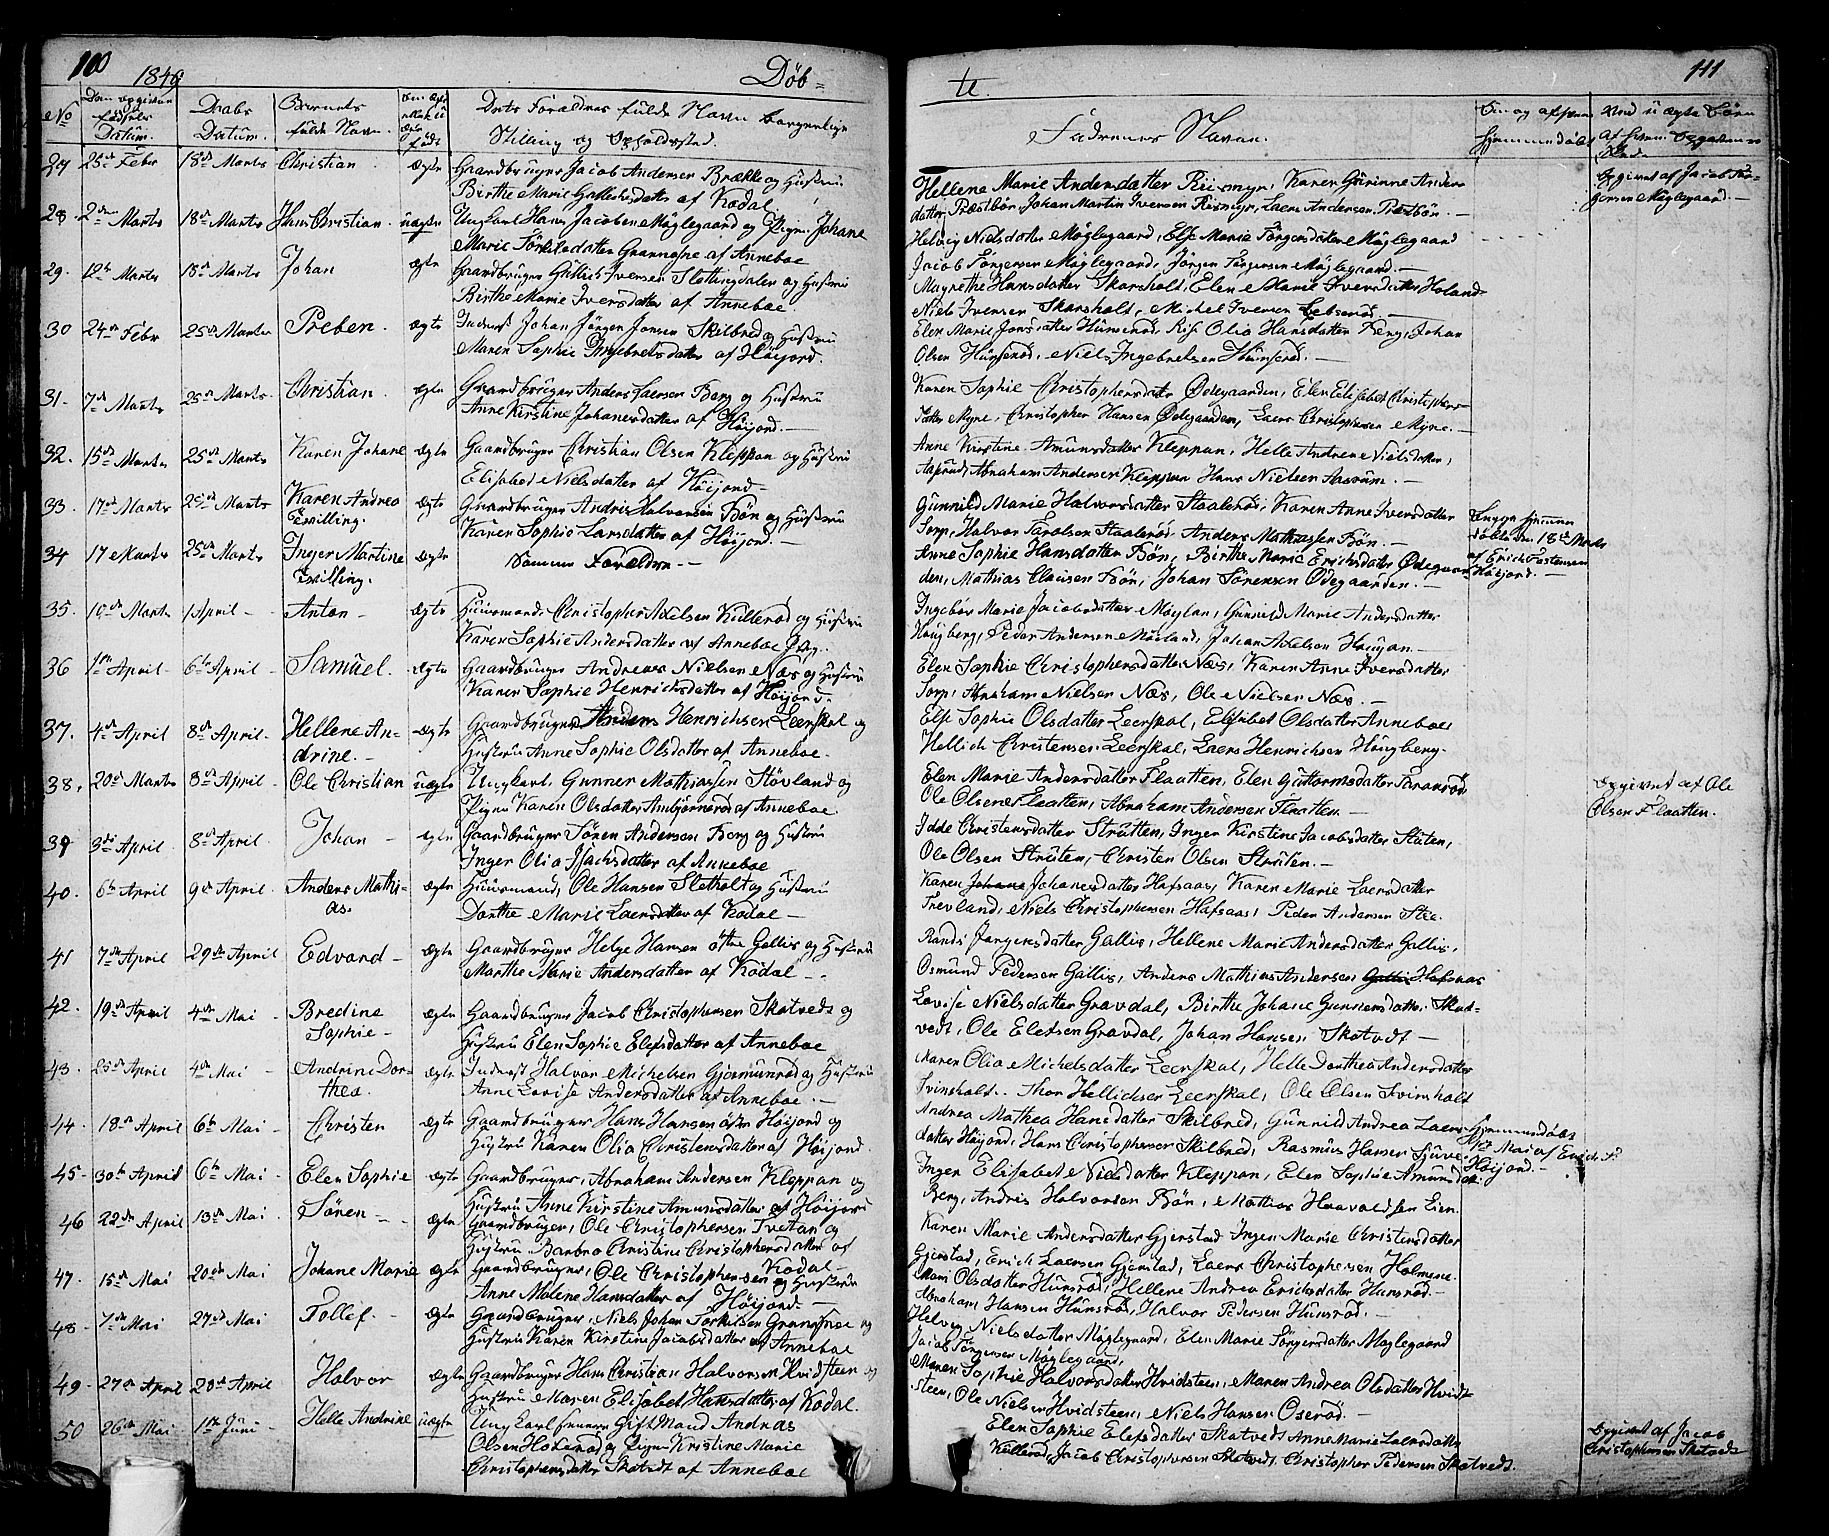 100
1849
Døb=
No
Datum.
Daabs Datum.
Barnets fulde Navn.
Stilling og Opholdssted.
27 25de Febr 18de Marts Christian ægte Gaardbruger Jacob Andersen Brække og Hustru
Birthe Marie af Kodal.
28 2den Marts 18de Marts Hans Christian. uægte Ungkarl Hans Jacobsen Møglegaard og Pigen Johane
Marie af Anneboe
29. 12te Marts 18de Marts Johan ægte Gaardbruger Iversen og Hustru
Birthe Marie Iversdatter af Anneboe.
30 24de Febr 25de Marts Preben. ægte Inderst Johan Jørgen Jonsen Skilbred og Hustru
Maren Sophie Ingebretsdatter af Høijord.
31. 7de Marts 25de Marts Christian. ægte Gaardbruger Anders Larsen Berg og Hustru
Anne Kirstine Johanesdatter af Høijord.—
32. 15de Marts 25de Marts Karen Johane ægte Gaardbruger Christian Olsen Kleppan og Hustru
Elisabed Nielsdatter af Høijord
33. 17de Marts 25de Marts Karen Andrea ægte Gaardbruger Andris Halvorsen Bøn og Hustru
Tvilling. Karen Sophie Larsdatter af Høijord —
34 17 Marts 25de Marts Inger Martine ægte Samme Forældre.—
Tvilling.
35. 10de Marts 1 April — Anton — ægte Huusmand. Christopher Axelsen Kullerød og Hustru
Karen Sophie Andersdatter af Anneboe
36 1ste April 6te April Samuel. ægte Gaardbruger Andreas Nielsen Næs og Hustru
Karen Sophie Henrichsdatter af Høijord.
37. 4de April 8de April Hellene An= ægte Gaardbruger Anders Henrichsen Leerskal og
drine.— Hustru Anne Sophie Olsdatter af Anneboe.
38. 20de Marts 8de April Ole Christian uægte Ungkarl. Gunner Mathiassen Støvland og
Pigen Karen Olsdatter Ambjørnerød af Anneboe
39 3die April 8de April. Johan — ægte Gaardbruger Søren Andersen Berg og Hustru
Inger Olia Isachsdatter af Anneboe
40. 6te April 9de April. Anders Mathi= ægte Huusmand, Ole Hansen Sletholt og Hustru
as. Dorthe Marie Laersdatter af Kodal —
41 7de April 29de April Edvard — ægte Gaardbruger Helge Hansen østre Gallis og Hustru
Marthe Marie Andersdatter af Kodal —
42. 19de April 4de Mai — Bredine ægte Gaardbruger Jacob Christophersen Skatvedt og
Sophie — Hustru Elen Sophie Elefsdatter af Anneboe
43. 25de April 4de Mai — Andrine Dor= ægte Inderst Halvor Michelsen Gjermunrød og Hustru
thea. Anne Lovise Andersdatter af Anneboe.—
44. 18de April 6te Mai — Christen ægte Gaardbruger Hans Hansen østre Høijord og
Hustru Karen Olia Christensdatter af Høijord.
45. 30te April 6te Mai — Elen Sophie ægte Gaardbruger, Abraham Andersen Kleppan og
Hustru Anne Kirstine Amunsdatter af Høijord
46 22de April 13de Mai Søren — ægte Gaardbruger, Ole Christophersen Tvetan og
Hustru Barbro Christine Christophersdatter af
Kodal —
47. 15de Mai 20de Mai Johane Marie ægte Gaardbruger, Ole Christophersen og Hustru
Anne Malene Hansdatter af Høijord.—
48. 7de Mai 27de Mai Tollef. ægte Gaardbruger, Niels Johan Torkilsen Grannæse og
Hustru Karen Kirstine Jacobsdatter af Anneboe
49. 27de April 20de April Halvor ægte Gaardbruger Hans Christian Halvorsen Hvidsteen og
Hustru Maren Elisabet Hansdatter af Kodal.
50 26de Mai 1ste Juni — Helle Andrine uægte Ungkarl Gift Mand Andreas
Olsen og Pigen Kristine Marie
Christophersdatter Skatvedt af Anneboe
te.
111
Fadernes Navne.
Hellene Marie Andersdatter Reismyr, Karen Gurinne Anders
datter Præstbøn, Johan Martin Iversen Reismyr, Laers Andersen Præstbøn.—
Opgivet af Jacob Jør=
gensen Møglegaard.—
Helvig Nielsdatter Møglegaard, Else Marie Jørgensdatter Møglegaard
Jacob Jørgensen Møglegaard. Jørgen Jørgensen Møglegaard.—
Magrethe Hansdatter Skarsholt, Elen Marie Iversdatter Holand
Niels Iversen Skarsholt, Michel Iversen
Elen Marie Jonsdatter Hunserød, Olia Hansdatter Berg, Johan
Olsen Hunserød, Niels Ingebretsen Hunserød.—
Karen Sophie Christophersdatter Ødegaarden, Elen Elisabet Christophers=
datter Myre, Christopher Hansen Ødegaarden, Laers Christophersen Myre.—
Anne Kirstine Amunsdatter Kleppan, Helle Andrene Nielsdatter,
Aasrud, Abraham Andersen Kleppan Hans Nielsen Aasrum.—
Gunnild Marie Halvorsdatter Staalerød, Karen Anne Iversdatter
Sorp, Halvor Staalerød, Anders Mathiassen Bøn.—
Anne Sophie Hansdatter Bøn, Birthe Marie Erichsdatter Ødegaar
den, Mathias Clausen Bøn, Johan Sørensen Ødegaarden.—
Hjemme
døbte den 18de Marts
af Erich Torstensen
Høijord.—
Ingebør Marie Jacobsdatter Møglan, Gunnild Marie Andersdatter
Haugberg, Peder Andersen Møeland, Johan Axelsen Haugan.—
Elen Sophie Christophersdatter Næs, Karen Anne Iversdatter
Sorp, Abraham Nielsen Næs, Ole Nielsen Næs.—
Else Sophie Olsdatter Leerskal, Elisabet Olsdatter Anneboe
Hellich Christensen Leerskal, Laers Henrichsen Haugberg.
Elen Marie Andersdatter Flaatten, Elen Guttormsdatter
Ole Olsen Flaatten, Abraham Andersen Flaatten.—
Opgivet af Ole
Olsen Flaatten.
Idde Christensdatter Strutten, Inger Kirstine Jacobsdatter Stuten,
Ole Olsen Struten, Christen Olsen Struten.—
Karen Johane Johanesdatter Hafsaas, Karen Marie Laersdatter
Trevland, Niels Christophersen Hafsaas, Peder Andersen Stee.
Randi Jørgensdatter Gallis, Hellene Marie Andersdatter Gallis,
Osmund Pedersen Gallis, Anders Mathias Andersen Gallis Hafsaas
Lovise Nielsdatter Gravdal, Birthe Johane Gunnersdatter Skat=
vedt, Ole Elefsen Gravdal, Johan Hansen Skatvedt —
Karen Olia Michelsdatter Leerskal, Helle Dorthea Andersdatter
Svinsholt. Thor Hellichsen Leerskal, Ole Olsen Svinsholt
Andrea Mathea Hansdatter Skilbred, Gunnild Andrea Laers
datter Høijord, Hans Christophersen Skilbred, Rasmus Hansen
Hjemmedøbt
1ste Mai af Erich T.
Høijord.—
Inger Elisabet Nielsdatter Kleppan, Elen Sophie Amunsdatter
Berg, Andris Halvorsen Bøn, Mathias Haavaldsen Eien.
Karen Marie Andersdatter Gjerstad Inger Marie Christensdatter
Gjerstad, Erich Laersen Gjerstad, Laers Christophersen Holmene.
Mari Olsdatter Hunsrød, Hellene Andrea Erichsdatter Hunsrød.—
Abraham Hansen Hunsrød, Halvor Pedersen Hunsrød.—
Helvig Nielsdatter Møglegaard, Elen Marie Jørgensdatter Møglegaard
Jacob Jørgensen Møglegaard,
Maren Sophie Halvorsdatter Hvidsteen, Maren Andrea Olsdatter Hvidt
steen, Ole Nielsen Hvidsteen, Niels Hansen Oserød.—
Elen Sophie Elefsdatter Skatvedt Anne Marie Laersdatter
Kullerød, Jacob Christophersen Skatvedt, Christopher Pedersen Skatvedt.
Opgivet af Jacob
Christophersen Skatvedt